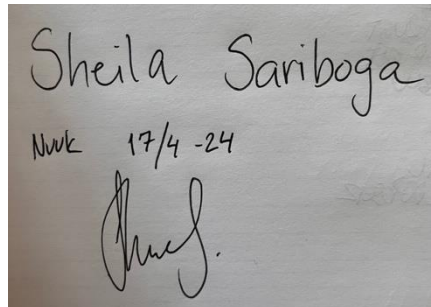 Sheila Sariboga
Nuuk 17/4 -24